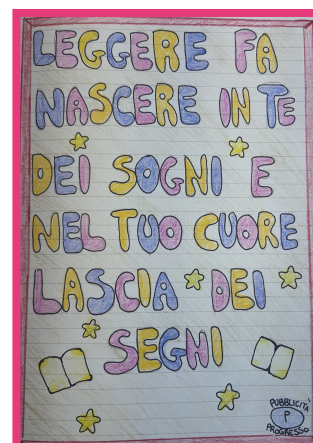 LEGGERE FA
NASCERE IN TE
DEI SOGNI E
NEL TUO CUORE
LASCIA DEI
SEGNI
PUBBLICITÀ
P
PROGRESSO